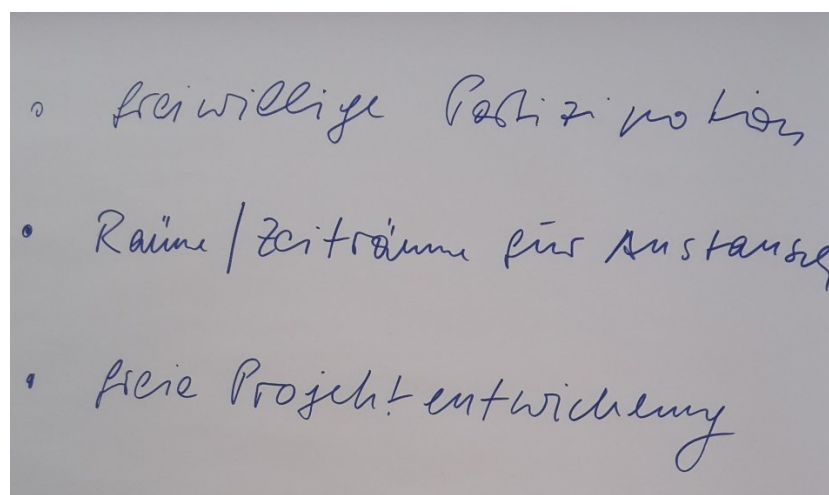 • freiwillige Partizipation
• Räume / Zeiträume für Austausch
• freie Projektentwicklung